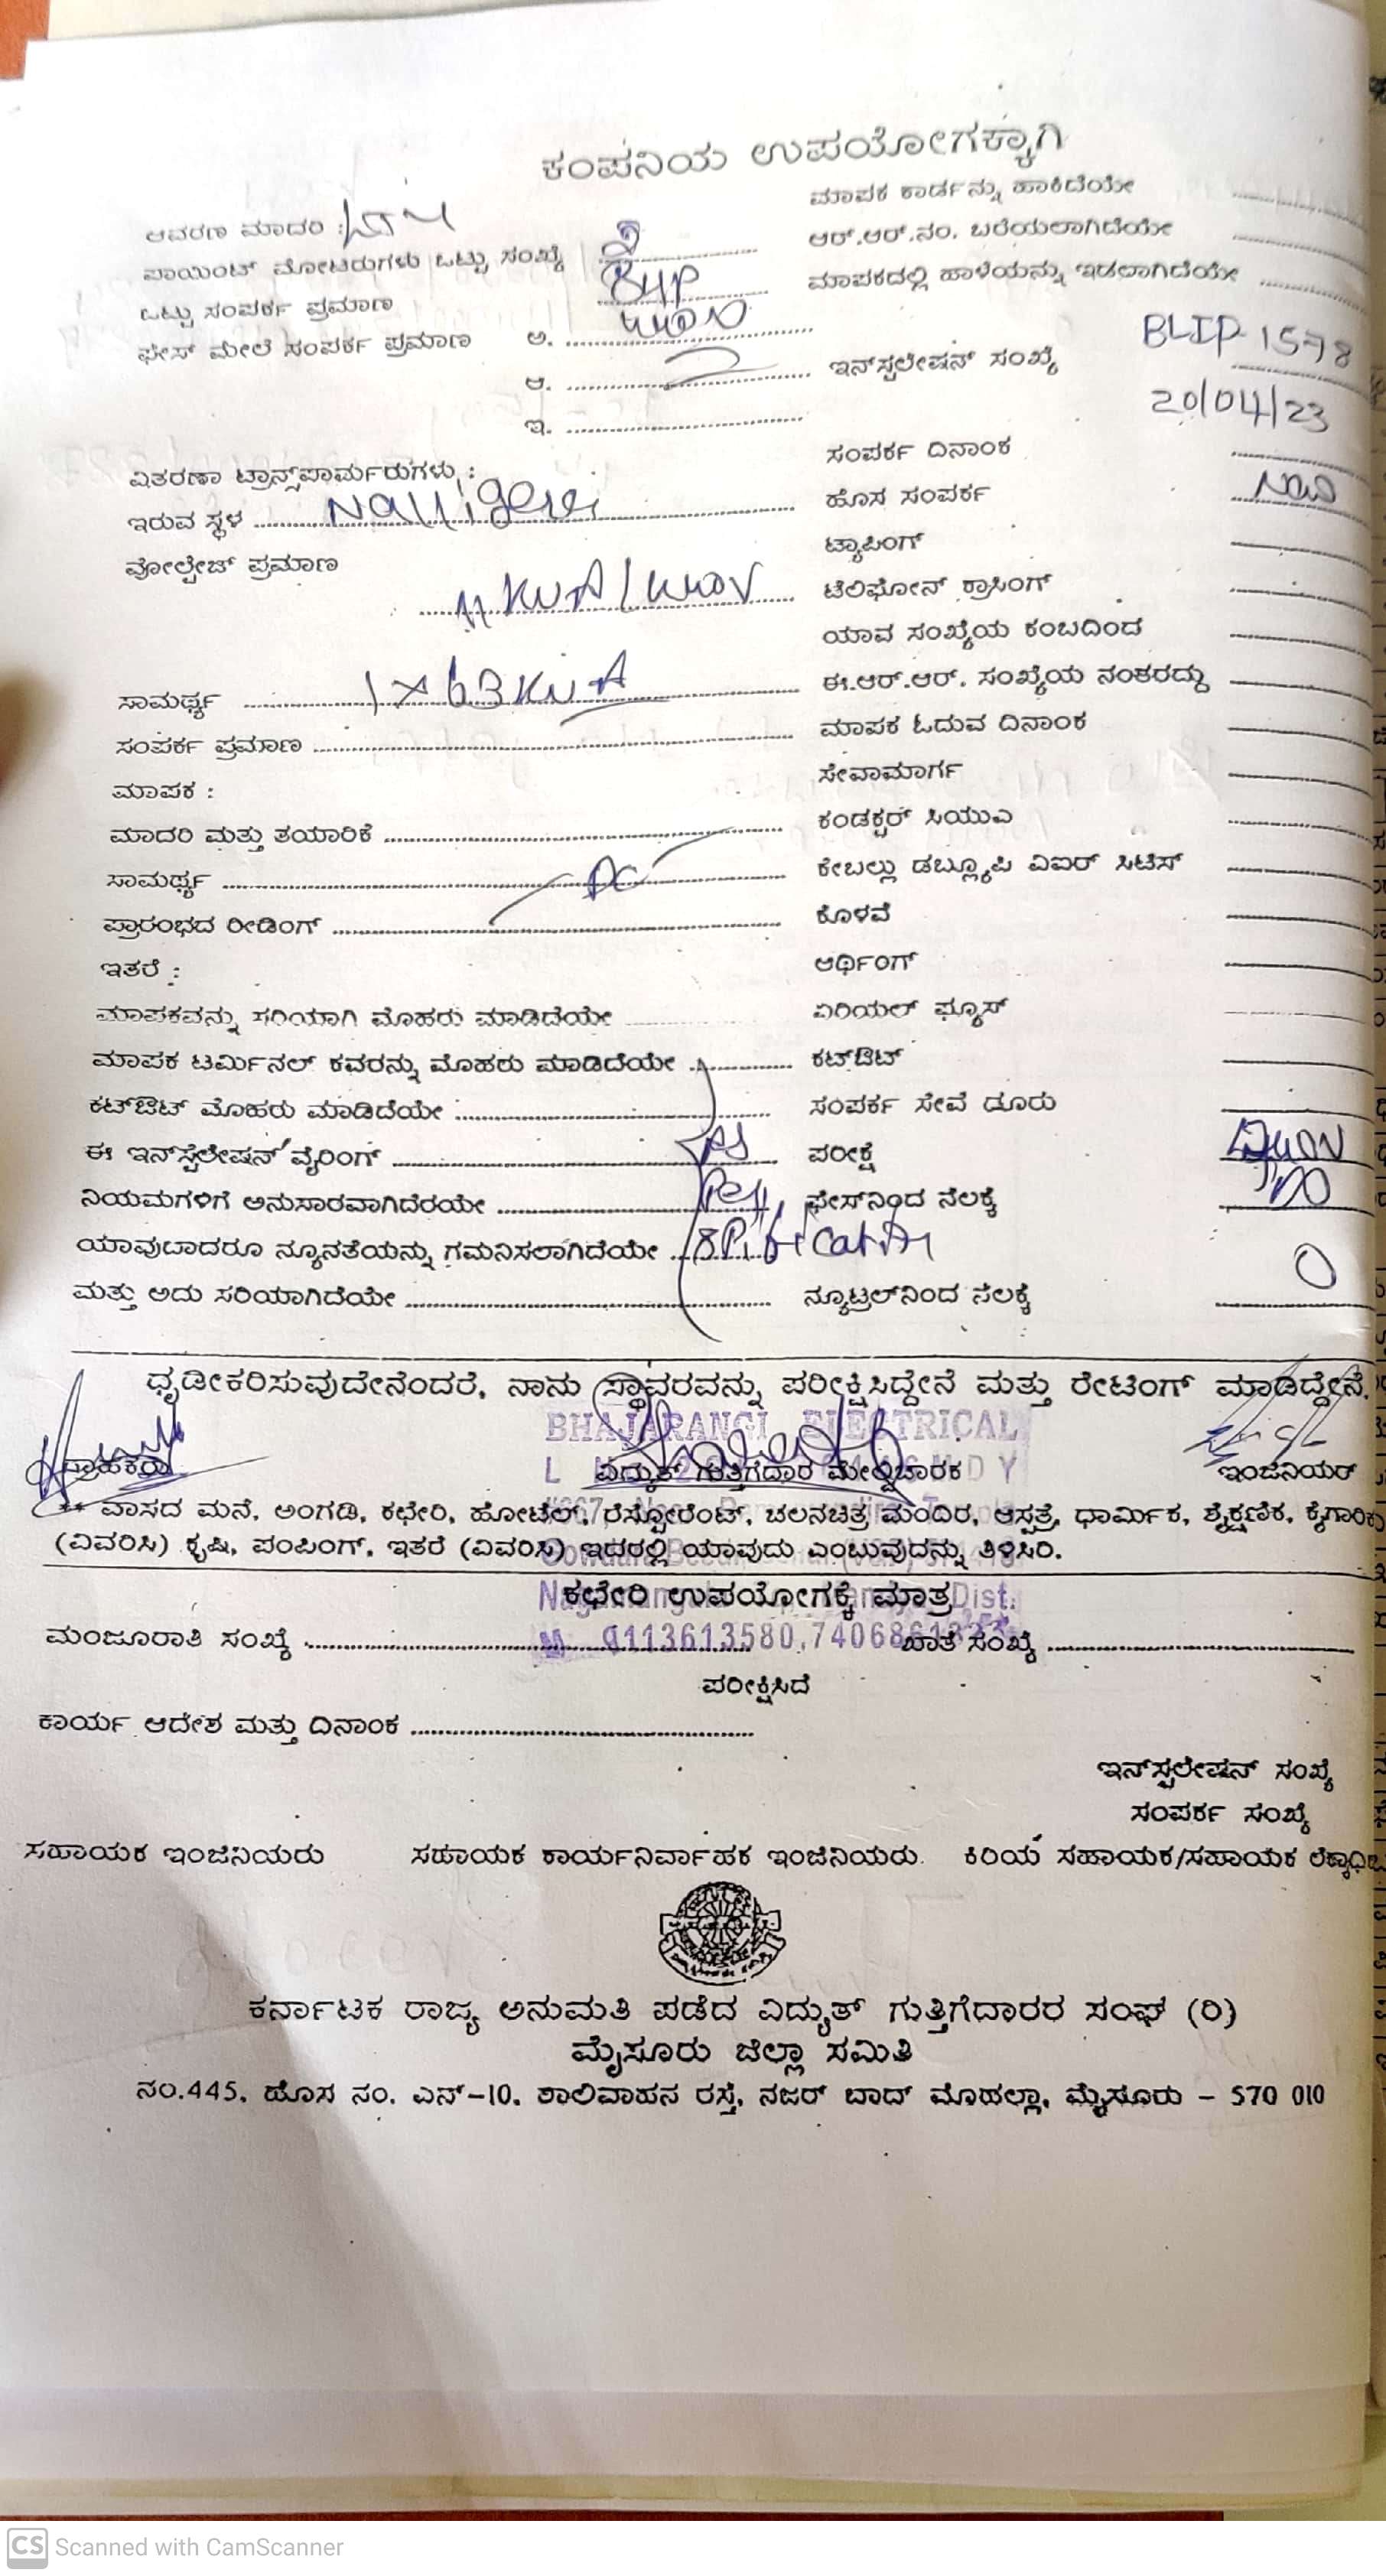 ಕಂಪನಿಯ ಉಪಯೋಗಕ್ಕಾಗಿ
ಆವರಣ ಮಾದರಿ :
ಪಾಯಿಂಟ್ ಮೋಟರುಗಳು ಒಟ್ಟು ಸಂಖ್ಯೆ
ಒಟ್ಟು ಸಂಪರ್ಕ ಪ್ರಮಾಣ
ಫೇಸ್ ಮೇಲೆ ಸಂಪರ್ಕ ಪ್ರಮಾಣ ಅ.
ಆ.
ಇ.
ವಿತರಣಾ ಟ್ರಾನ್ಸ್‌ಪಾರ್ಮರುಗಳು :
ಇರುವ ಸ್ಥಳ Nalligere
ವೋಲ್ಟೇಜ್ ಪ್ರಮಾಣ
ಸಾಮರ್ಥ್ಯ 1x63KVA
ಸಂಪರ್ಕ ಪ್ರಮಾಣ
ಮಾಪಕ :
ಮಾದರಿ ಮತ್ತು ತಯಾರಿಕೆ
ಸಾಮರ್ಥ್ಯ
ಪ್ರಾರಂಭದ ರೀಡಿಂಗ್
ಇತರೆ :
ಮಾಪಕವನ್ನು ಸರಿಯಾಗಿ ಮೊಹರು ಮಾಡಿದೆಯೇ
ಮಾಪಕ ಟರ್ಮಿನಲ್ ಕವರನ್ನು ಮೊಹರು ಮಾಡಿದೆಯೇ
ಕಟ್‌ಔಟ್ ಮೊಹರು ಮಾಡಿದೆಯೇ
ಈ ಇನ್‌ಸ್ಟೆಲೇಷನ್ ವೈರಿಂಗ್
ನಿಯಮಗಳಿಗೆ ಅನುಸಾರವಾಗಿದೆರಯೇ
ಯಾವುದಾದರೂ ನ್ಯೂನತೆಯನ್ನು ಗಮನಿಸಲಾಗಿದೆಯೇ
ಮತ್ತು ಅದು ಸರಿಯಾಗಿದೆಯೇ
ಮಾಪಕ ಕಾರ್ಡನ್ನು ಹಾಕಿದೆಯೇ
ಆರ್.ಆರ್.ನಂ. ಬರೆಯಲಾಗಿದೆಯೇ
ಮಾಪಕದಲ್ಲಿ ಹಾಳೆಯನ್ನು ಇಡಲಾಗಿದೆಯೇ
ಇನ್‌ಸ್ಟಲೇಷನ್ ಸಂಖ್ಯೆ BLIP 1578
20/04/23
ಸಂಪರ್ಕ ದಿನಾಂಕ
ಹೊಸ ಸಂಪರ್ಕ New
ಟ್ಯಾಪಿಂಗ್
ಟೆಲಿಫೋನ್ ಕ್ರಾಸಿಂಗ್
ಯಾವ ಸಂಖ್ಯೆಯ ಕಂಬದಿಂದ
ಈ.ಆರ್.ಆರ್. ಸಂಖ್ಯೆಯ ನಂತರದ್ದು
ಮಾಪಕ ಓದುವ ದಿನಾಂಕ
ಸೇವಾಮಾರ್ಗ
ಕಂಡಕ್ಟರ್ ಸಿಯುಎ
ಕೇಬಲ್ಲು ಡಬ್ಲ್ಯೂಪಿ ವಿಐರ್ ಸಿಟಿಸ್
ಕೊಳವೆ
ಆರ್ಥಿಂಗ್
ಏರಿಯಲ್ ಫ್ಯೂಸ್
ಕಟ್‌ಔಟ್
ಸಂಪರ್ಕ ಸೇವೆ ದೂರು
ಪರೀಕ್ಷೆ
ಫೇಸ್‌ನಿಂದ ನೆಲಕ್ಕೆ
ನ್ಯೂಟ್ರಲ್‌ನಿಂದ ನೆಲಕ್ಕೆ 0
ಧೃಡೀಕರಿಸುವುದೇನೆಂದರೆ, ನಾನು ಸ್ಥಾವರವನ್ನು ಪರೀಕ್ಷಿಸಿದ್ದೇನೆ ಮತ್ತು ರೇಟಿಂಗ್ ಮಾಡಿದ್ದೇನೆ.
BHAJARANGI ELECTRICAL
ಗ್ರಾಹಕರು ವಿದ್ಯುತ್ ಗುತ್ತಿಗೆದಾರ ಮೇಲ್ವಿಚಾರಕ ಇಂಜಿನಿಯರ್
** ವಾಸದ ಮನೆ, ಅಂಗಡಿ, ಕಛೇರಿ, ಹೋಟೆಲ್, ರೆಸ್ಟೋರೆಂಟ್, ಚಲನಚಿತ್ರ ಮಂದಿರ, ಆಸ್ಪತ್ರೆ, ಧಾರ್ಮಿಕ, ಶೈಕ್ಷಣಿಕ, ಕೈಗಾರಿಕಾ
(ವಿವರಿಸಿ) ಕೃಷಿ, ಪಂಪಿಂಗ್, ಇತರೆ (ವಿವರಿಸಿ) ಇದರಲ್ಲಿ ಯಾವುದು ಎಂಬುವುದನ್ನು ತಿಳಿಸಿರಿ.
ಕಛೇರಿ ಉಪಯೋಗಕ್ಕೆ ಮಾತ್ರ Dist.
ಮಂಜೂರಾತಿ ಸಂಖ್ಯೆ ಖಾತೆ ಸಂಖ್ಯೆ
ಪರೀಕ್ಷಿಸಿದೆ
ಕಾರ್ಯ ಆದೇಶ ಮತ್ತು ದಿನಾಂಕ
ಇನ್‌ಸ್ಟಲೇಷನ್ ಸಂಖ್ಯೆ
ಸಂಪರ್ಕ ಸಂಖ್ಯೆ
ಸಹಾಯಕ ಇಂಜಿನಿಯರು ಸಹಾಯಕ ಕಾರ್ಯನಿರ್ವಾಹಕ ಇಂಜಿನಿಯರು. ಕಿರಿಯ ಸಹಾಯಕ/ಸಹಾಯಕ
ಕರ್ನಾಟಕ ರಾಜ್ಯ ಅನುಮತಿ ಪಡೆದ ವಿದ್ಯುತ್ ಗುತ್ತಿಗೆದಾರರ ಸಂಘ (ರಿ)
ಮೈಸೂರು ಜಿಲ್ಲಾ ಸಮಿತಿ
ನಂ.445, ಹೊಸ ನಂ. ಎನ್-10, ಶಾಲಿವಾಹನ ರಸ್ತೆ, ನಜರ್ ಬಾದ್ ಮೊಹಲ್ಲಾ, ಮೈಸೂರು - 570 010
CS Scanned with CamScanner